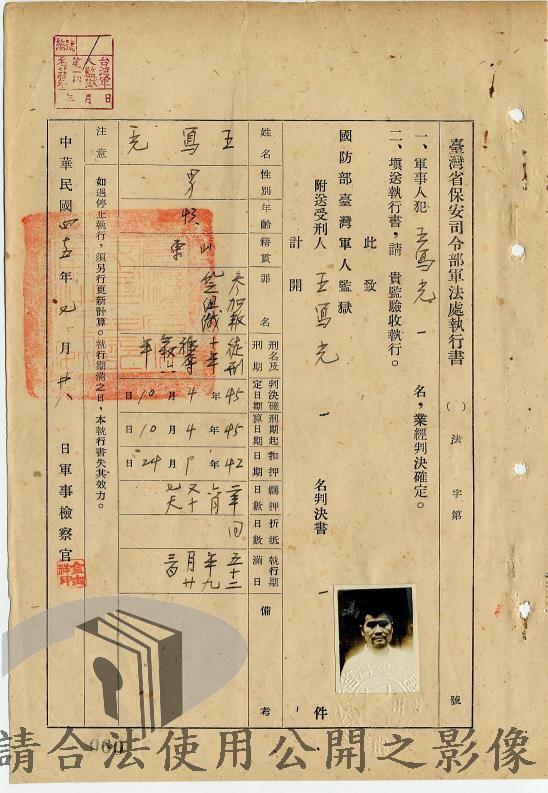 臺灣省保安司令部軍法處執行書
( ) 法 字第 號
一、軍事人犯 王寫光 一 名，業經判決確定。
二、填送執行書，請 貴監驗收執行。
此致
國防部臺灣軍人監獄
附送受刑人 王寫光 一 名判決書 一 件
計開
姓名 性別 年齡 籍貫 罪名 刑名及刑期 判決確定日期 刑期起算日期 扣押日期 羈押日數 折抵日數 執行期滿日 備考
王寫光 男 山東 參加叛亂組織 徒刑十年 45年4月10日 45年4月10日 42年 月24日
五十二年九月廿 日
注意 如遇停止執行，須另行更新計算。執行期滿之日，本執行書失其效力。
中華民國四十五年 月廿八日軍事檢察官
台灣軍人監獄
年 月 日
請合法使用公開之影像